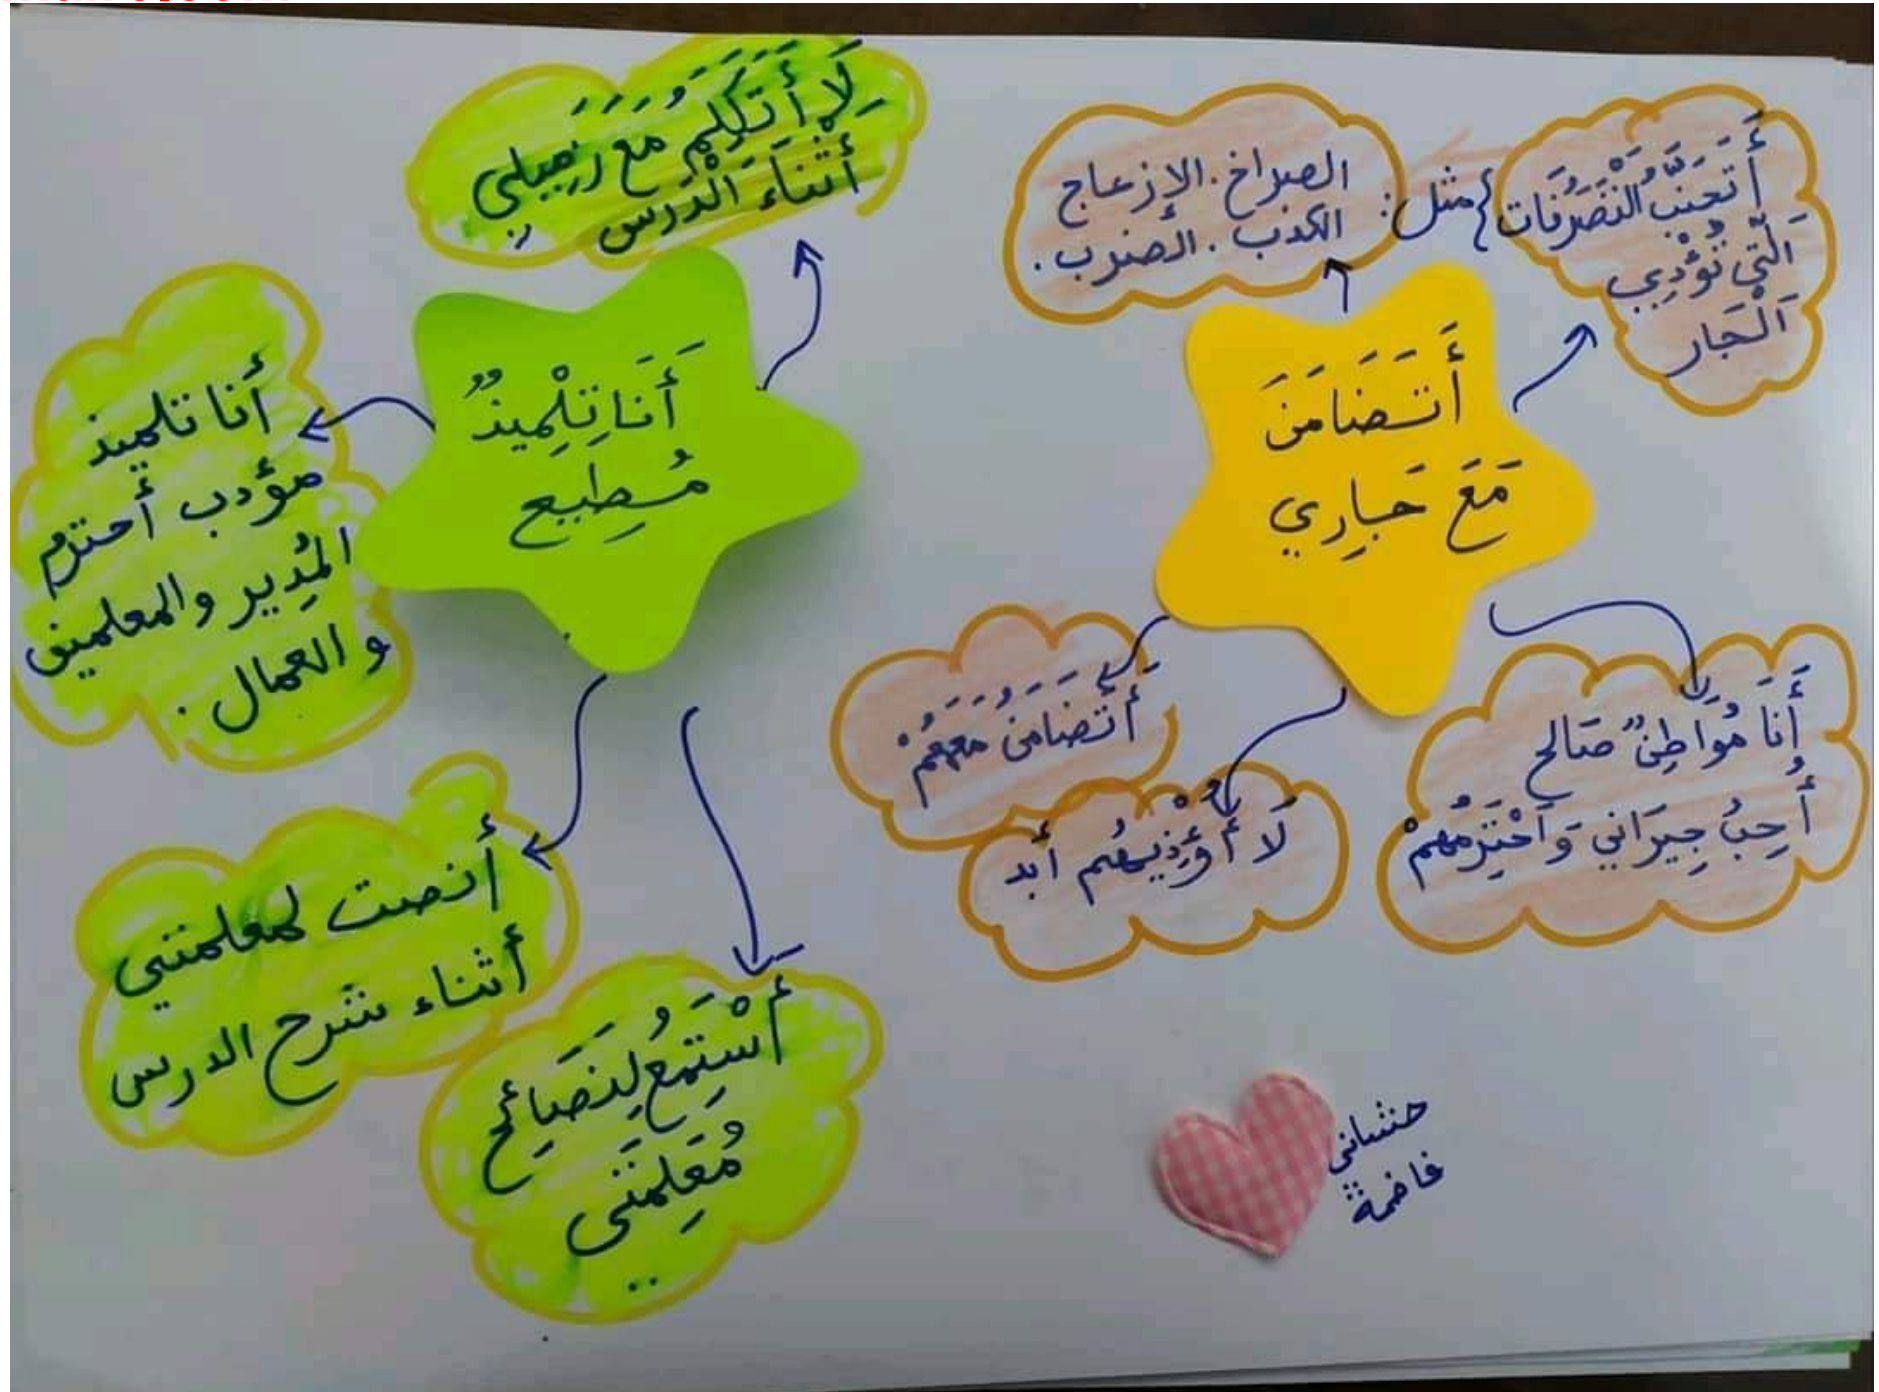 أَتَضَامَنَ
مَعَ جَارِي
أَتَجَنَّبُ التَّصَرُفَات
الَّتِي تُؤْذِي
اَلْجَار
مثل:
الصراخ. الإزعاج
الكذب. الضرب.
أَنَا مُوَاطِنٌ صَالح
أُحِبُ جِيرَاني وَاَحْتَرِمُهمْ
لَا أُؤْذِيهُم أَبد
أَتَضَامَنُ مَعَهُمْ
أَنَا تِلْمِيذٌ
مُطِيع
لَا أَتَكَلَمُ مَعَ زَمِيلِي
أَثْنَاءَ الْدَرس
أنا تلميذ
مؤدب أحترم
المُدِير والمعلمين
و العمال.
أنصت لمعلمتي
أثناء شرح الدرس
أَسْتَمِعُ لِنَصَائِح
مُعَلِمَتِي
حنشاني